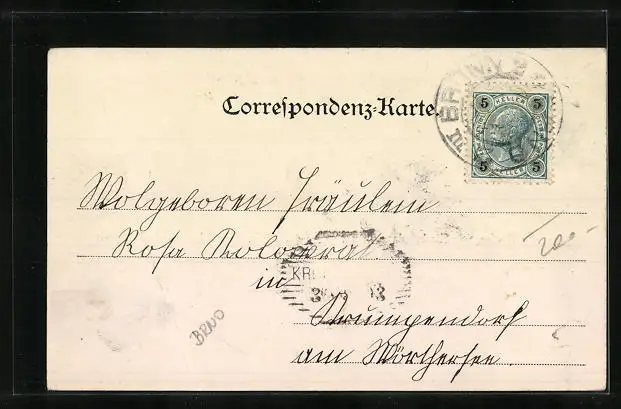 Correspondenz-Karte.
BRÜNN 2
5 HELLER 5
5 HELLER 5
Wolgeboren Fräulein
Rosa Kolowrat
in
KR
3 03
Krumpendorf
am Wörthersee.
200-
BRNO